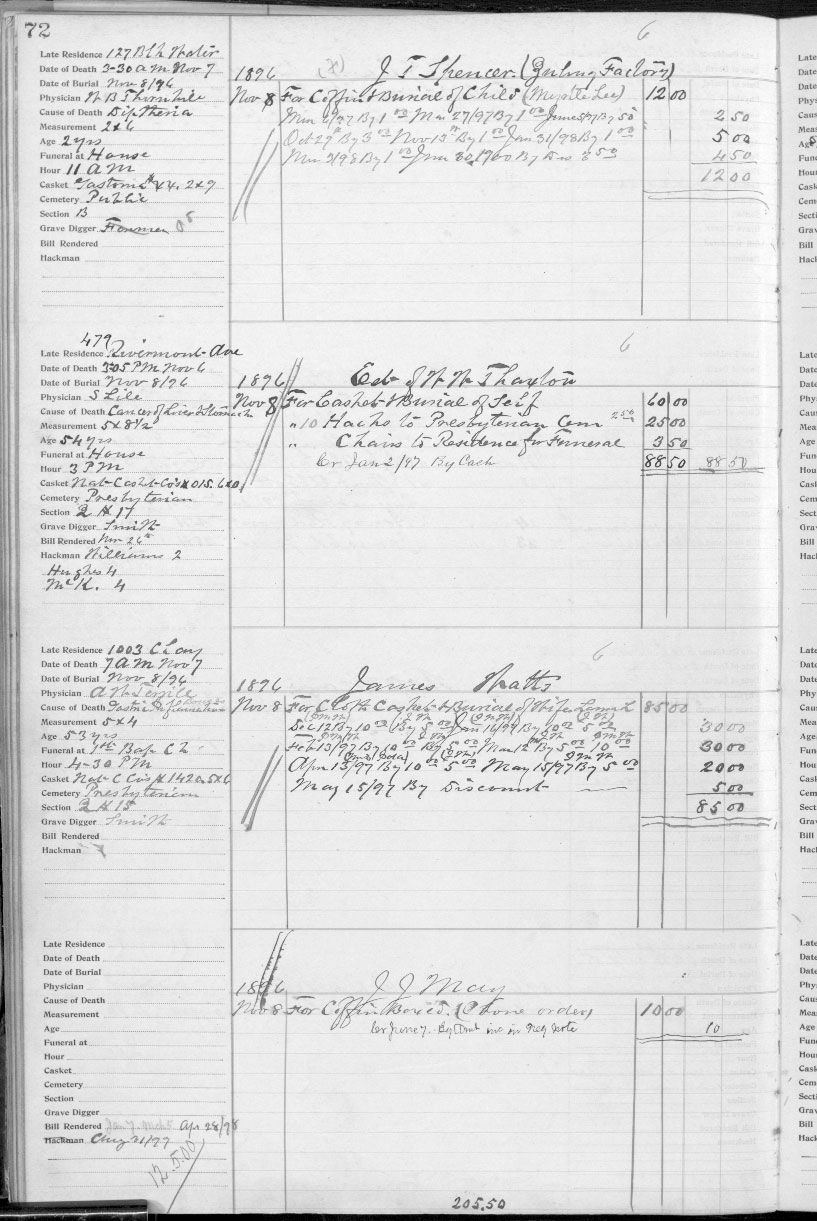 72
6
Late Residence 127 Blk Water
Date of Death 3-30 a.m. Nov 7
Date of Burial Nov 8/96
Physician W B Thornhile
Cause of Death Diptheria
Measurement 2x6
Age 2 yrs
Funeral at House
Hour 11 A M
Casket 2x9
Cemetery Public
Section B
Grave Digger
Bill Rendered
Hackman
1896 J T Spencer. (Factory)
Nov 8 For Coffin & Burial of Child (Myrtle Lee) 12 00
By 1 00 Mar 27/97 By 1 00 June 5/97 By 50 2 50
Oct 29th By 3 00 Nov 13th By 1 00 Jan 31/98 By 1 00 5 00
By 1 00 June 30, 1900 By 3 50 4 50
12 00
6
479
Late Residence Rivermont Ave
Date of Death 3-05 P M Nov 6
Date of Burial Nov 8/96
Physician S Lile
Cause of Death Cancer of Liver & Stomach
Measurement 5x8 1/2
Age 54 yrs
Funeral at House
Hour 3 P M
Casket Nat Caskt Co's # 015. 6x0
Cemetery Presbyterian
Section 2 # 17
Grave Digger Smith
Bill Rendered Nov 26th
Hackman Williams 2
Hughes 4
McK. 4
1896 Est of W W Thaxton
Nov 8 For Casket & Burial of Self 60 00
" 10 Hacks to Presbyterian Cem 2 50 25 00
" Chairs to Residence for Funeral 3 50
Cr Jan 2/97 By Cash 88 50 88 50
6
Late Residence 1003 Clay
Date of Death 7 A M Nov 7
Date of Burial Nov 8/96
Physician
Cause of Death
Measurement 5x4
Age 53 yrs
Funeral at 1st Bap Ch
Hour 4-30 P M
Casket Nat C Co's # 1420. 5x6
Cemetery Presbyterian
Section 2 # 15
Grave Digger Smith
Bill Rendered
Hackman
1896 James Watts
Nov 8 For Cloth Casket & Burial of Wife 85 00
Dec 12 By 10 00 By 5 00 Jan 16/97 By 10 00 5 00 30 00
Feb 13/97 By 10 00 By 5 00 Mar 12 By 5 00 10 00 30 00
Apr 13/97 By 10 00 5 00 May 15/97 By 5 00 20 00
May 15/97 By Discount 5 00
85 00
Late Residence
Date of Death
Date of Burial
Physician
Cause of Death
Measurement
Age
Funeral at
Hour
Casket
Cemetery
Section
Grave Digger
Bill Rendered Apr 28/98
Hackman Aug 21/99
12.5.00
1896 J J May
Nov 8 For Coffin Boxed. (Phone order) 10 00
Cr June 7. By in Neg Note 10
205.50